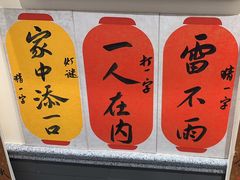 家中添一口
灯谜
猜一字
一人在内
打一字
雷不雨
猜一字